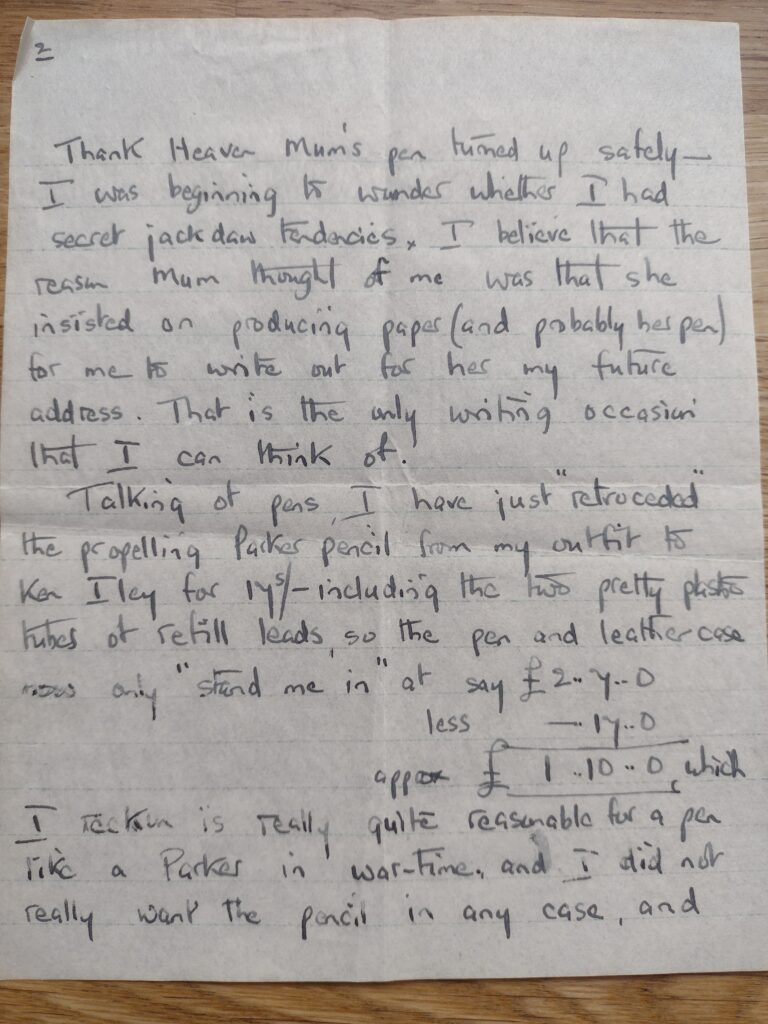 2
Thank Heaven Mum's pen turned up safely —
I was beginning to wonder whether I had
secret jackdaw tendencies. I believe that the
reason Mum thought of me was that she
insisted on producing paper (and probably her pen)
for me to write out for her my future
address. That is the only writing occasion
that I can think of.
Talking of pens, I have just "retroceded"
the propelling Parker pencil from my outfit to
Ken Iley for 17s/- including the two pretty plastic
tubes of refill leads, so the pen and leather case
now only "stand me in" at say £2..7..0
less — 17..0
approx £ 1..10..0, which
I reckon is really quite reasonable for a pen
like a Parker in war-time, and I did not
really want the pencil in any case, and